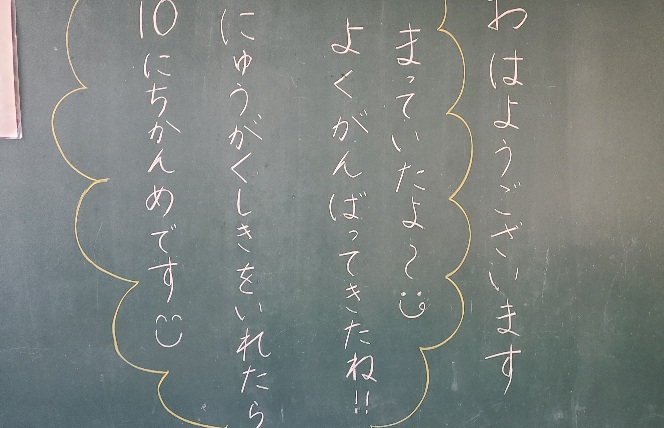 おはようございます
まっていたよ〜
よくがんばってきたね!!
にゅうがくしきをいれたら
10にちかんめです